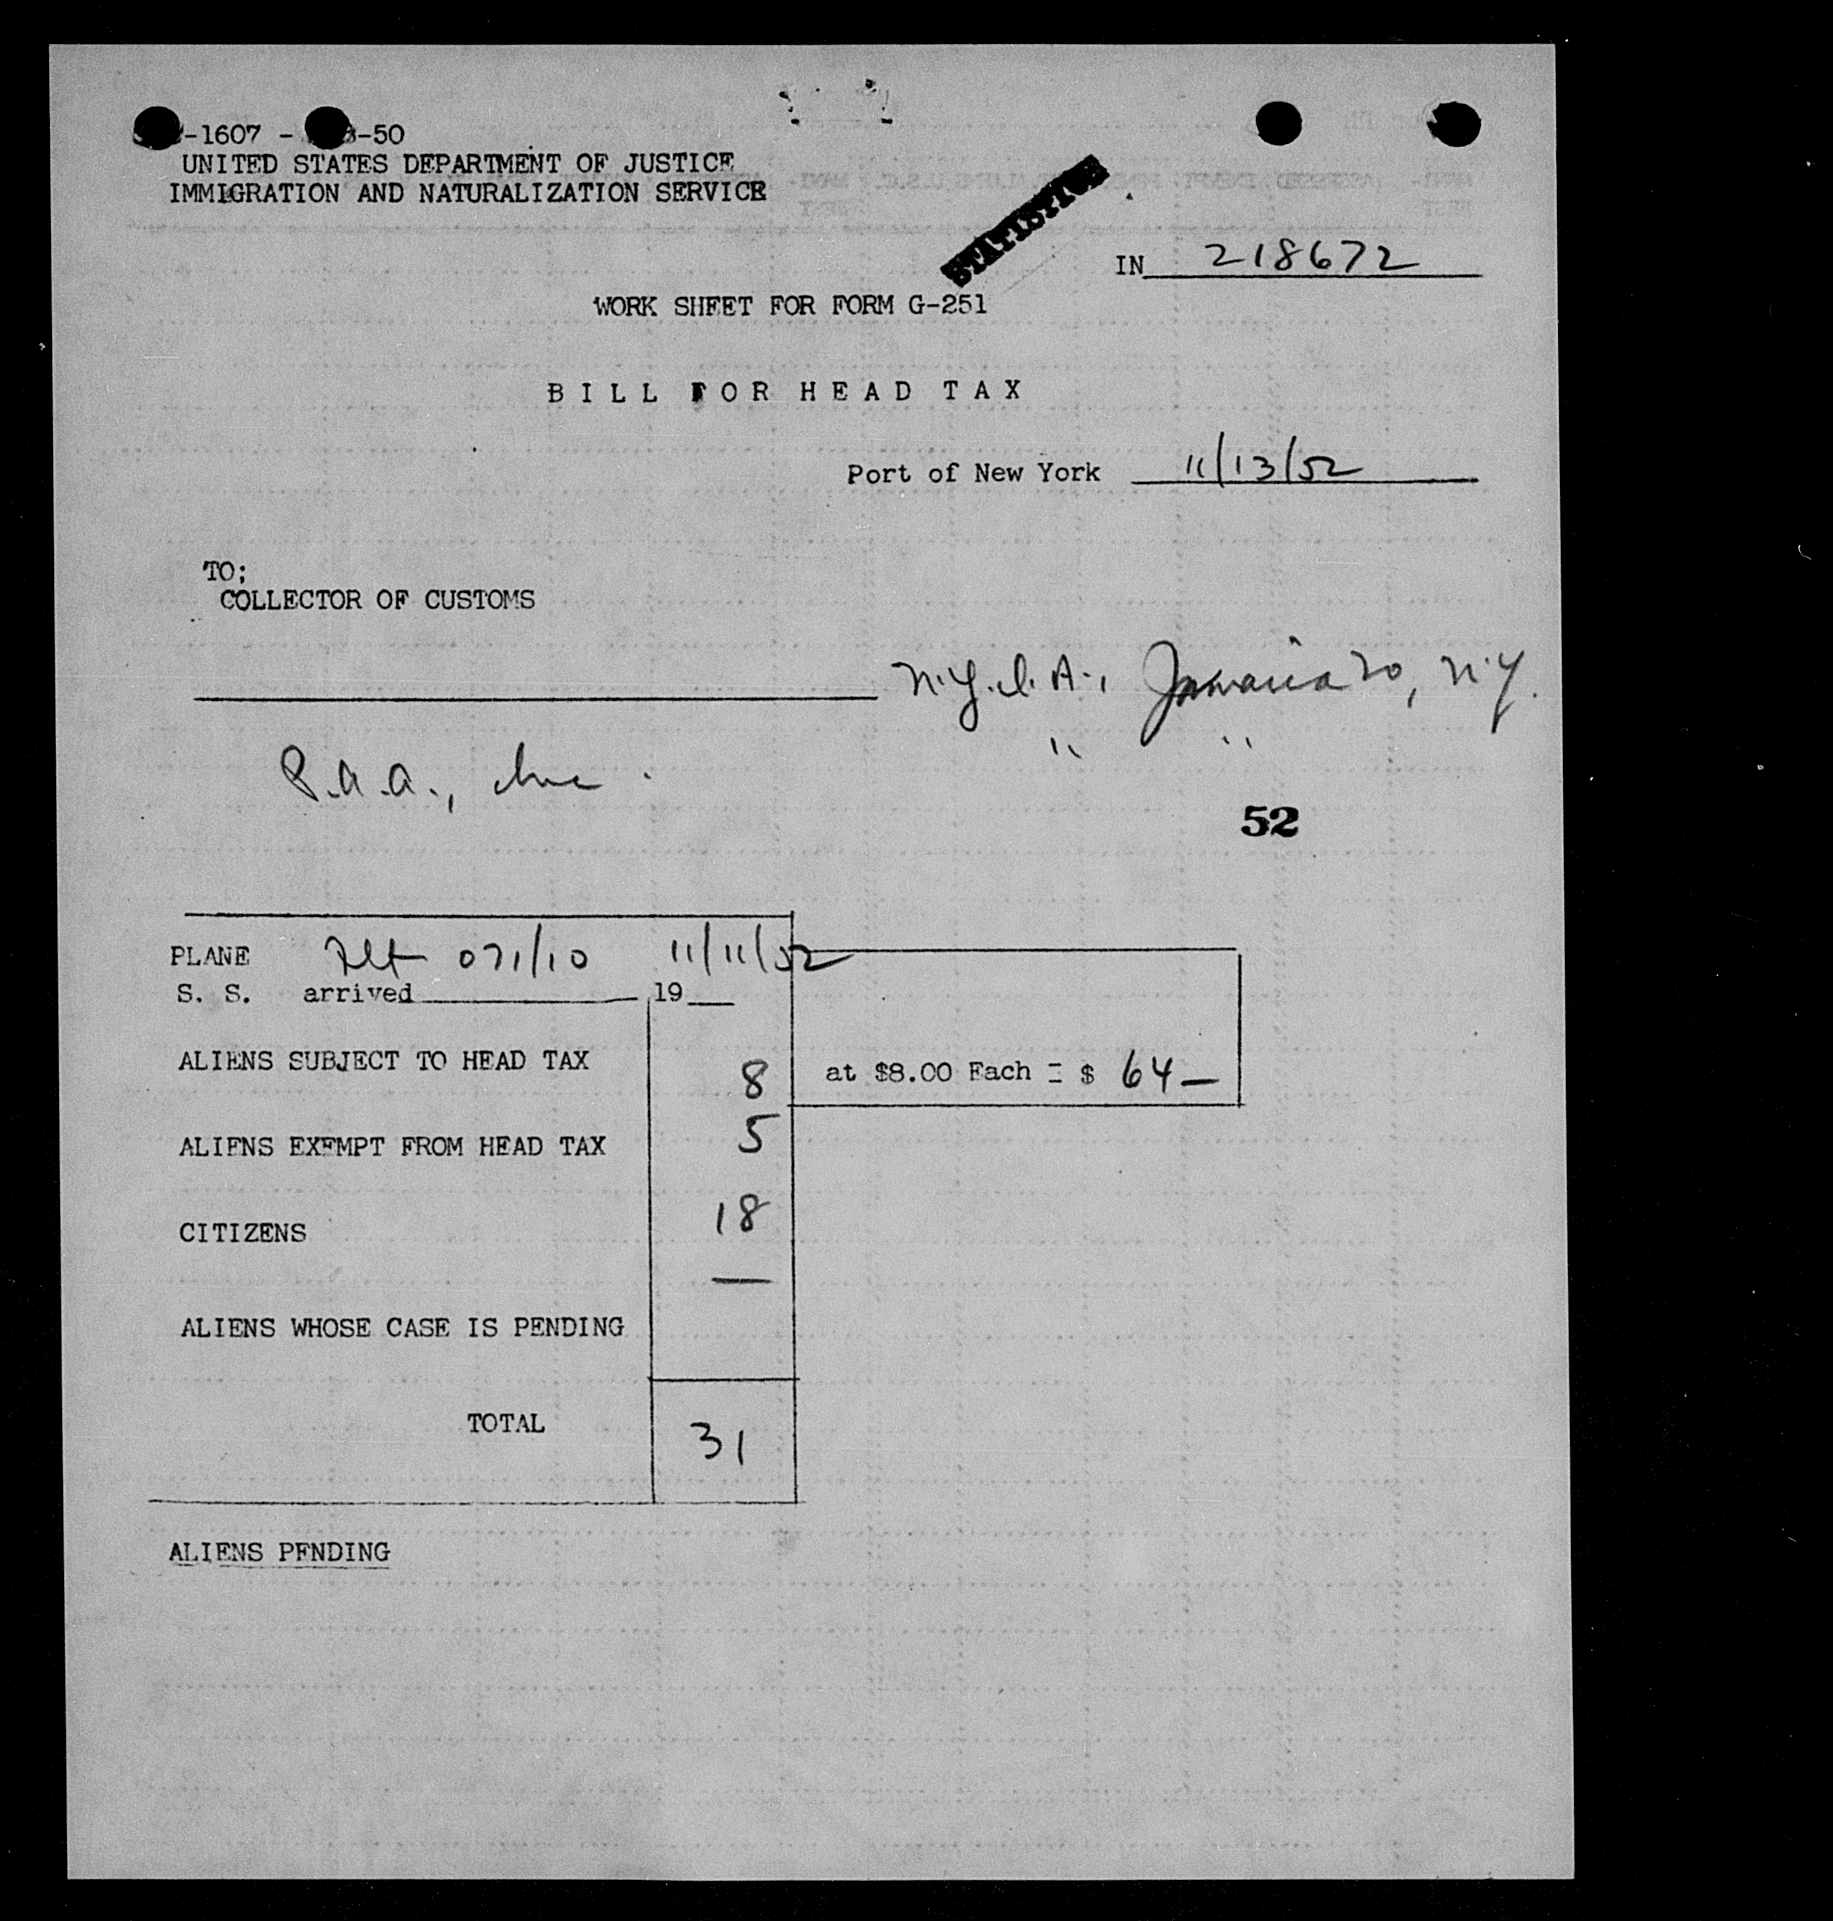 -1607 - -50
UNITED STATES DEPARTMENT OF JUSTICE
IMMIGRATION AND NATURALIZATION SERVICE
STATISTICS
IN 218672
WORK SHEET FOR FORM G-251
BILL FOR HEAD TAX
Port of New York 11/13/52
TO;
COLLECTOR OF CUSTOMS
N.Y.I.A., Jamaica 30, N.Y.
P.A.A., Inc. " "
52
PLANE Flt 071/10 11/11/52
S. S. arrived 19
ALIENS SUBJECT TO HEAD TAX 8 at $8.00 Each = $ 64—
ALIENS EXEMPT FROM HEAD TAX 5
CITIZENS 18
—
ALIENS WHOSE CASE IS PENDING
TOTAL 31
ALIENS PENDING